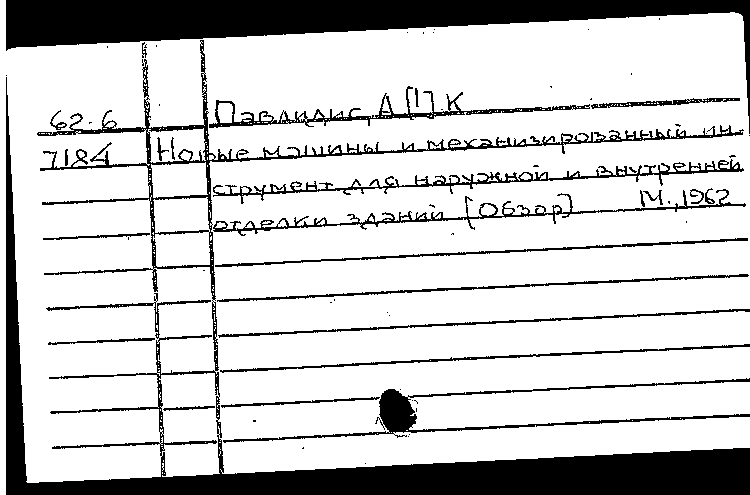 62-6 Павлидис, А [1] К
7184 Новые машины и механизированный ин-
струмент для наружной и внутренней
отделки зданий [Обзор] М., 1962